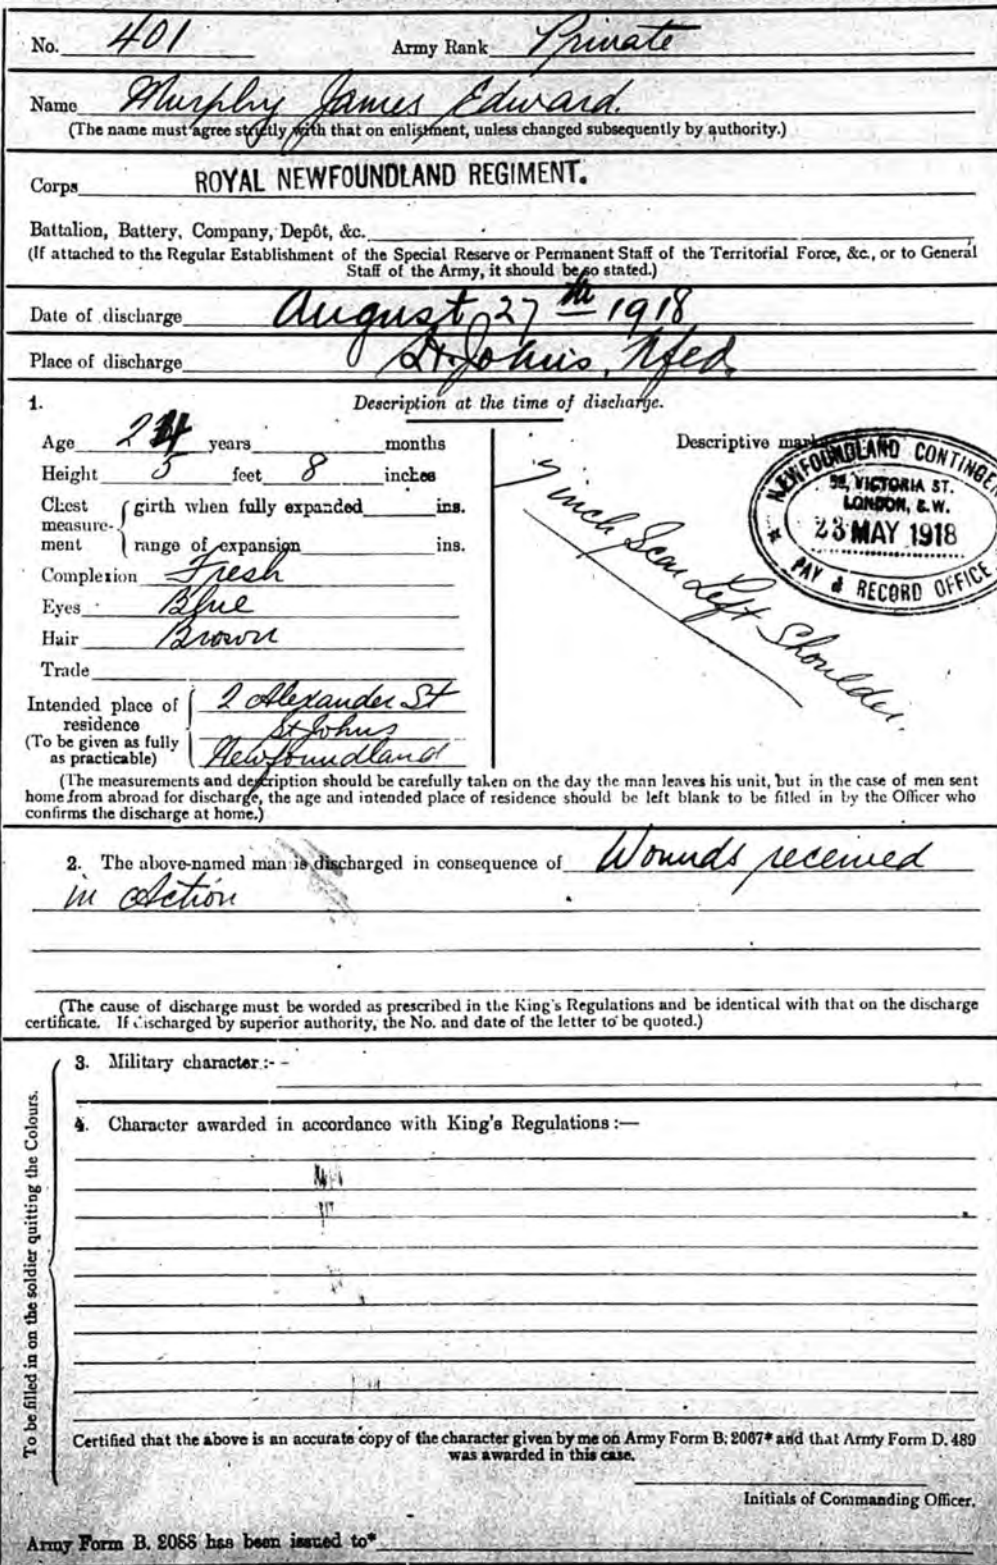 No. 401 Army Rank Private
Name Murphy James Edward.
(The name must agree strictly with that on enlistment, unless changed subsequently by authority.)
Corps ROYAL NEWFOUNDLAND REGIMENT.
Battalion, Battery, Company, Depôt, &c.
(If attached to the Regular Establishment of the Special Reserve or Permanent Staff of the Territorial Force, &c., or to General
Staff of the Army, it should be so stated.)
Date of discharge August 27th 1918
Place of discharge St. Johns, Nfld.
1. Description at the time of discharge.
Age 24 years months
Height 5 feet 8 inches
Chest measurement
girth when fully expanded ins.
range of expansion ins.
Complexion Fresh
Eyes Blue
Hair Brown
Trade
Intended place of residence
(To be given as fully as practicable)
2 Alexander St
St Johns
Newfoundland
Descriptive marks
inch Scar Left Shoulder.
NEWFOUNDLAND CONTINGENT
VICTORIA ST.
LONDON, S.W.
23 MAY 1918
PAY & RECORD OFFICE
(The measurements and description should be carefully taken on the day the man leaves his unit, but in the case of men sent
home from abroad for discharge, the age and intended place of residence should be left blank to be filled in by the Officer who
confirms the discharge at home.)
2. The above-named man is discharged in consequence of Wounds received
in Action
(The cause of discharge must be worded as prescribed in the King's Regulations and be identical with that on the discharge
certificate. If discharged by superior authority, the No. and date of the letter to be quoted.)
To be filled in on the soldier quitting the Colours.
3. Military character:-
4. Character awarded in accordance with King's Regulations:—
Certified that the above is an accurate copy of the character given by me on Army Form B. 2067* and that Army Form D. 489
was awarded in this case.
Initials of Commanding Officer.
Army Form B. 2088 has been issued to*